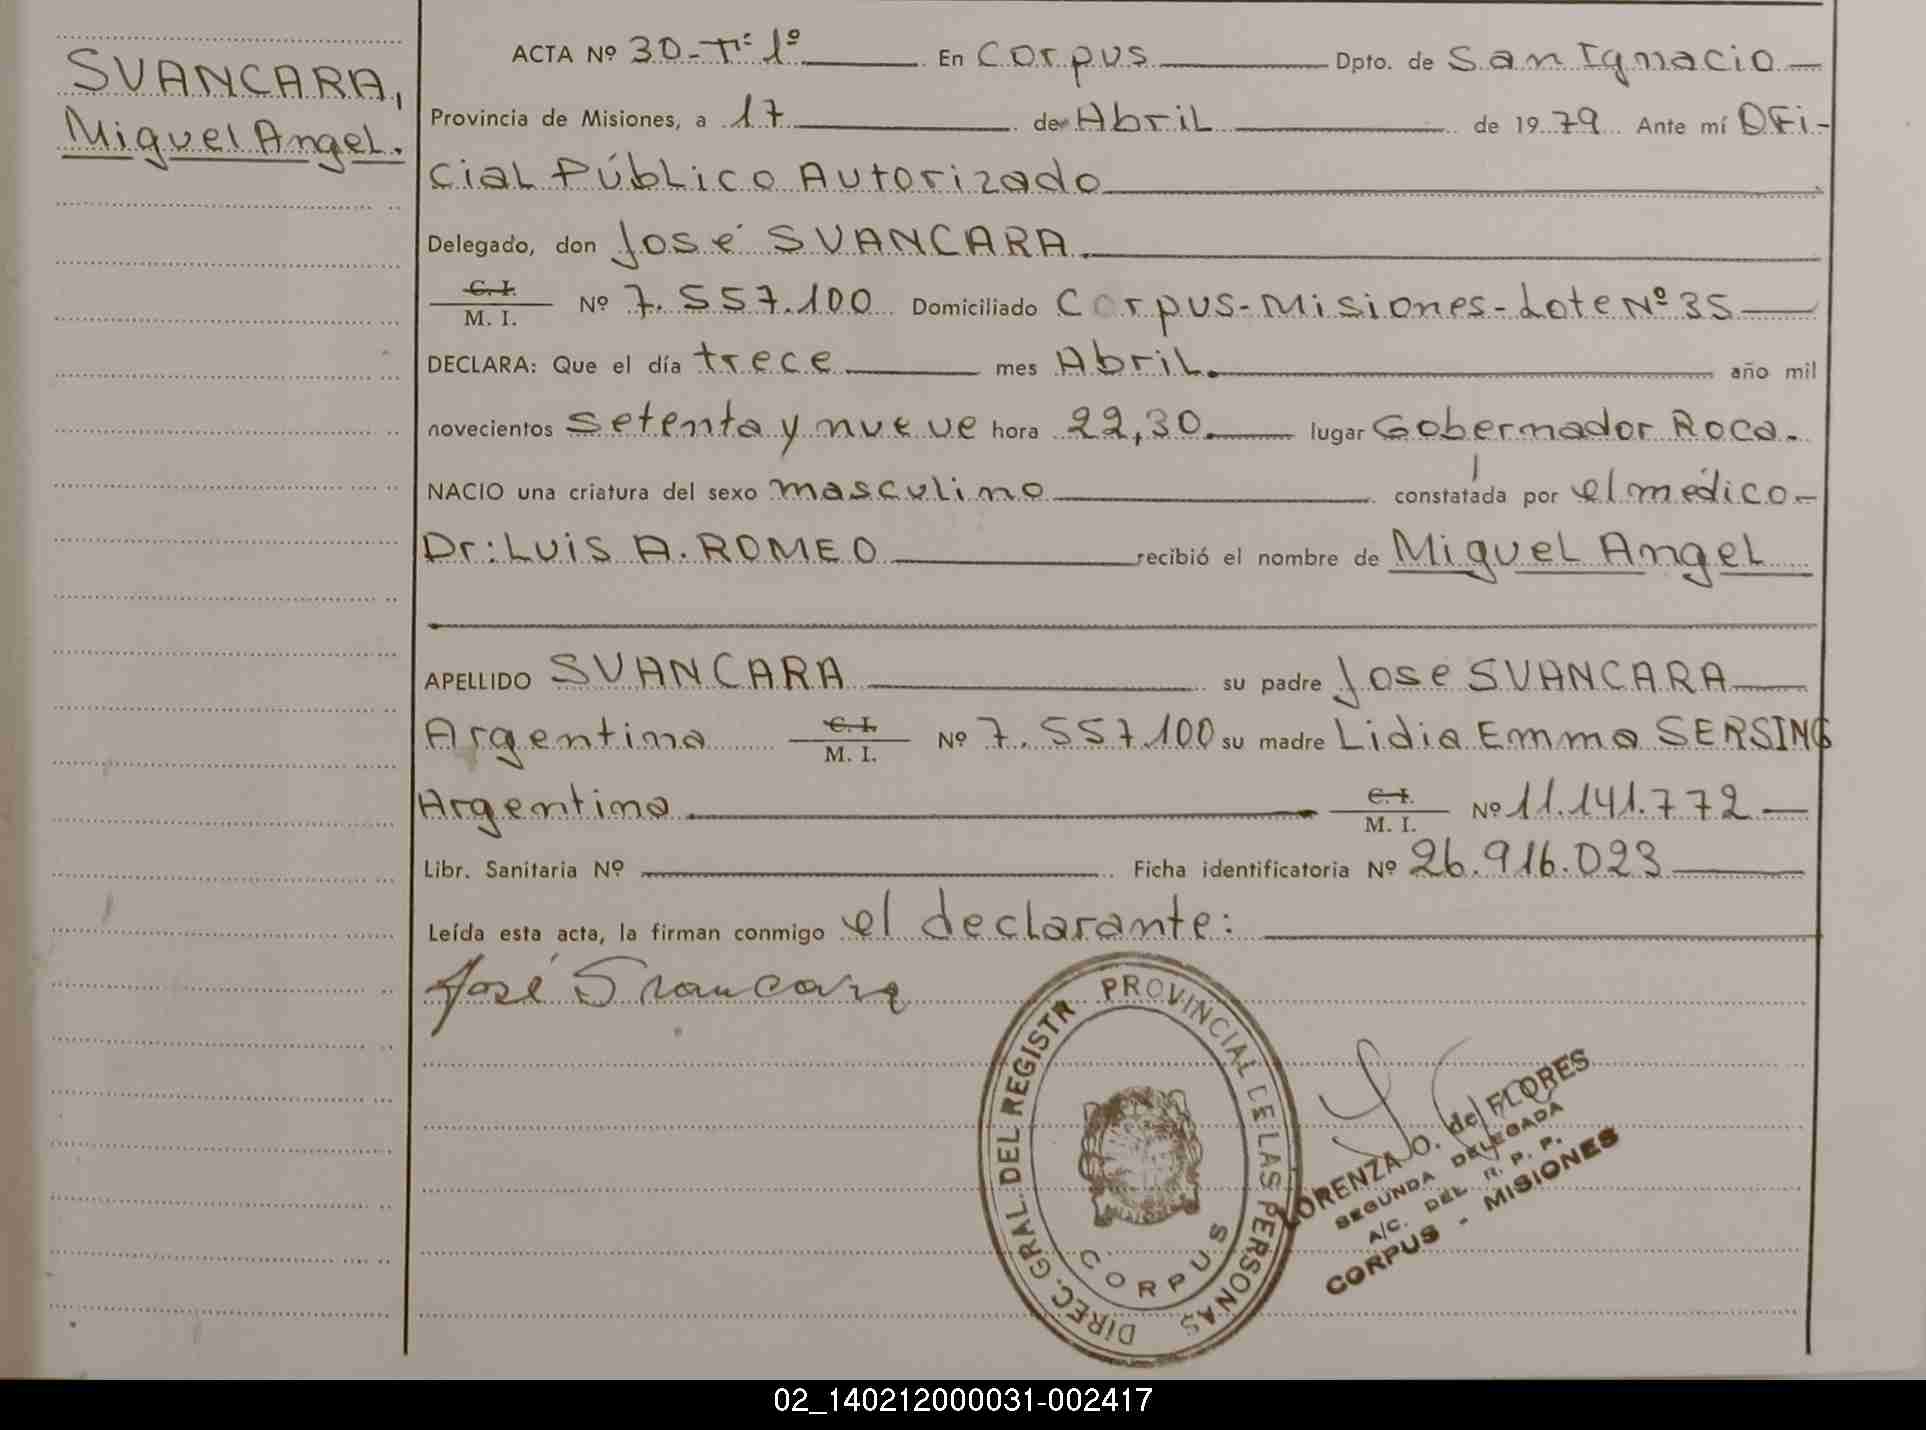 SVANCARA,
Miguel Angel.
ACTA Nº 30-Tº 1º En Corpus Dpto. de San Ignacio
Provincia de Misiones, a 17 de Abril de 1979 Ante mí OFi-
cial Público Autorizado
Delegado, don José SVANCARA.
C. I.
M. I. Nº 7.557.100 Domiciliado Corpus-Misiones-Lote Nº 35
DECLARA: Que el día trece mes Abril. año mil
novecientos setenta y nueve hora 22,30. lugar Gobernador Roca.
NACIO una criatura del sexo masculino constatada por el médico
Dr: Luis A. ROMEO recibió el nombre de Miguel Angel
APELLIDO SVANCARA su padre José SVANCARA
Argentina C. I.
M. I. Nº 7.557.100 su madre Lidia Emma SERSING
Argentina C. I.
M. I. Nº 11.141.772
Libr. Sanitaria Nº Ficha identificatoria Nº 26.916.023
Leída esta acta, la firman conmigo el declarante:
José Svancara
DIREC. GRAL. DEL REGISTR PROVINCIAL DE LAS PERSONAS
CORPUS
LORENZA O. de FLORES
SEGUNDA DELEGADA
A/C. DEL R. P. P.
CORPUS - MISIONES
02_140212000031-002417